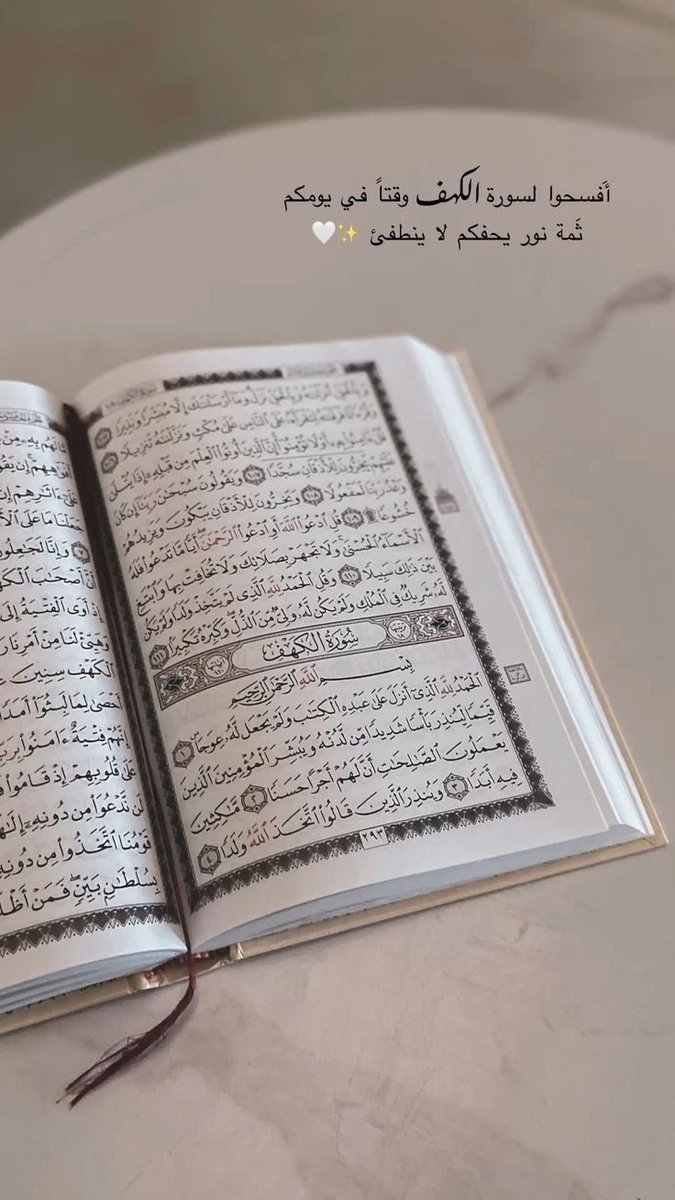 أَفسحوا لسورة الكهف وقتاً في يومكم
ثَمة نور يحفكم لا ينطفئ ✨🤍
وَبِٱلْحَقِّ أَنزَلْنَٰهُ وَبِٱلْحَقِّ نَزَلَ وَمَآ أَرْسَلْنَٰكَ إِلَّا مُبَشِّرًا وَنَذِيرًا ١٠٥
وَقُرْءَانًا فَرَقْنَٰهُ لِتَقْرَأَهُۥ عَلَى ٱلنَّاسِ عَلَىٰ مُكْثٍ وَنَزَّلْنَٰهُ تَنزِيلًا ١٠٦
قُلْ ءَامِنُوا۟ بِهِۦٓ أَوْ لَا تُؤْمِنُوٓا۟ إِنَّ ٱلَّذِينَ أُوتُوا۟ ٱلْعِلْمَ مِن قَبْلِهِۦٓ إِذَا يُتْلَىٰ
عَلَيْهِمْ يَخِرُّونَ لِلْأَذْقَانِ سُجَّدًا ١٠٧ وَيَقُولُونَ سُبْحَٰنَ رَبِّنَآ إِن كَانَ
وَعْدُ رَبِّنَا لَمَفْعُولًا ١٠٨ وَيَخِرُّونَ لِلْأَذْقَانِ يَبْكُونَ وَيَزِيدُهُمْ
خُشُوعًا ۩ ١٠٩ قُلِ ٱدْعُوا۟ ٱللَّهَ أَوِ ٱدْعُوا۟ ٱلرَّحْمَٰنَ أَيًّا مَّا تَدْعُوا۟ فَلَهُ
ٱلْأَسْمَآءُ ٱلْحُسْنَىٰ وَلَا تَجْهَرْ بِصَلَاتِكَ وَلَا تُخَافِتْ بِهَا وَٱبْتَغِ
بَيْنَ ذَٰلِكَ سَبِيلًا ١١٠ وَقُلِ ٱلْحَمْدُ لِلَّهِ ٱلَّذِى لَمْ يَتَّخِذْ وَلَدًا وَلَمْ يَكُن
لَّهُۥ شَرِيكٌ فِى ٱلْمُلْكِ وَلَمْ يَكُن لَّهُۥ وَلِىٌّ مِّنَ ٱلذُّلِّ وَكَبِّرْهُ تَكْبِيرًا ١١١
سُورَةُ الكَهْفِ
بِسْمِ ٱللَّهِ ٱلرَّحْمَٰنِ ٱلرَّحِيمِ
ٱلْحَمْدُ لِلَّهِ ٱلَّذِىٓ أَنزَلَ عَلَىٰ عَبْدِهِ ٱلْكِتَٰبَ وَلَمْ يَجْعَل لَّهُۥ عِوَجَا ١
قَيِّمًا لِّيُنذِرَ بَأْسًا شَدِيدًا مِّن لَّدُنْهُ وَيُبَشِّرَ ٱلْمُؤْمِنِينَ ٱلَّذِينَ
يَعْمَلُونَ ٱلصَّٰلِحَٰتِ أَنَّ لَهُمْ أَجْرًا حَسَنًا ٢ مَّٰكِثِينَ
فِيهِ أَبَدًا ٣ وَيُنذِرَ ٱلَّذِينَ قَالُوا۟ ٱتَّخَذَ ٱللَّهُ وَلَدًا ٤
٢٩٣
مَّا لَهُم بِهِۦ مِنْ
أَفْوَٰهِهِمْ إِن يَقُو
عَلَىٰٓ ءَاثَٰرِهِمْ إِن
جَعَلْنَا مَا عَلَى ٱلْأَ
٧ وَإِنَّا لَجَٰعِلُونَ
أَنَّ أَصْحَٰبَ ٱلْكَهْ
إِذْ أَوَى ٱلْفِتْيَةُ إِلَى
وَهَيِّئْ لَنَا مِنْ أَمْرِنَا رَ
ٱلْكَهْفِ سِنِينَ عَ
أَحْصَىٰ لِمَا لَبِثُوٓا۟ أَمَدًا
إِنَّهُمْ فِتْيَةٌ ءَامَنُوا۟ بِرَبِّ
عَلَىٰ قُلُوبِهِمْ إِذْ قَامُوا۟ فَ
لَن نَّدْعُوَا۟ مِن دُونِهِۦٓ إِلَٰهًا
قَوْمُنَا ٱتَّخَذُوا۟ مِن دُونِهِ
بِسُلْطَٰنٍۭ بَيِّنٍ فَمَنْ أَظْلَ